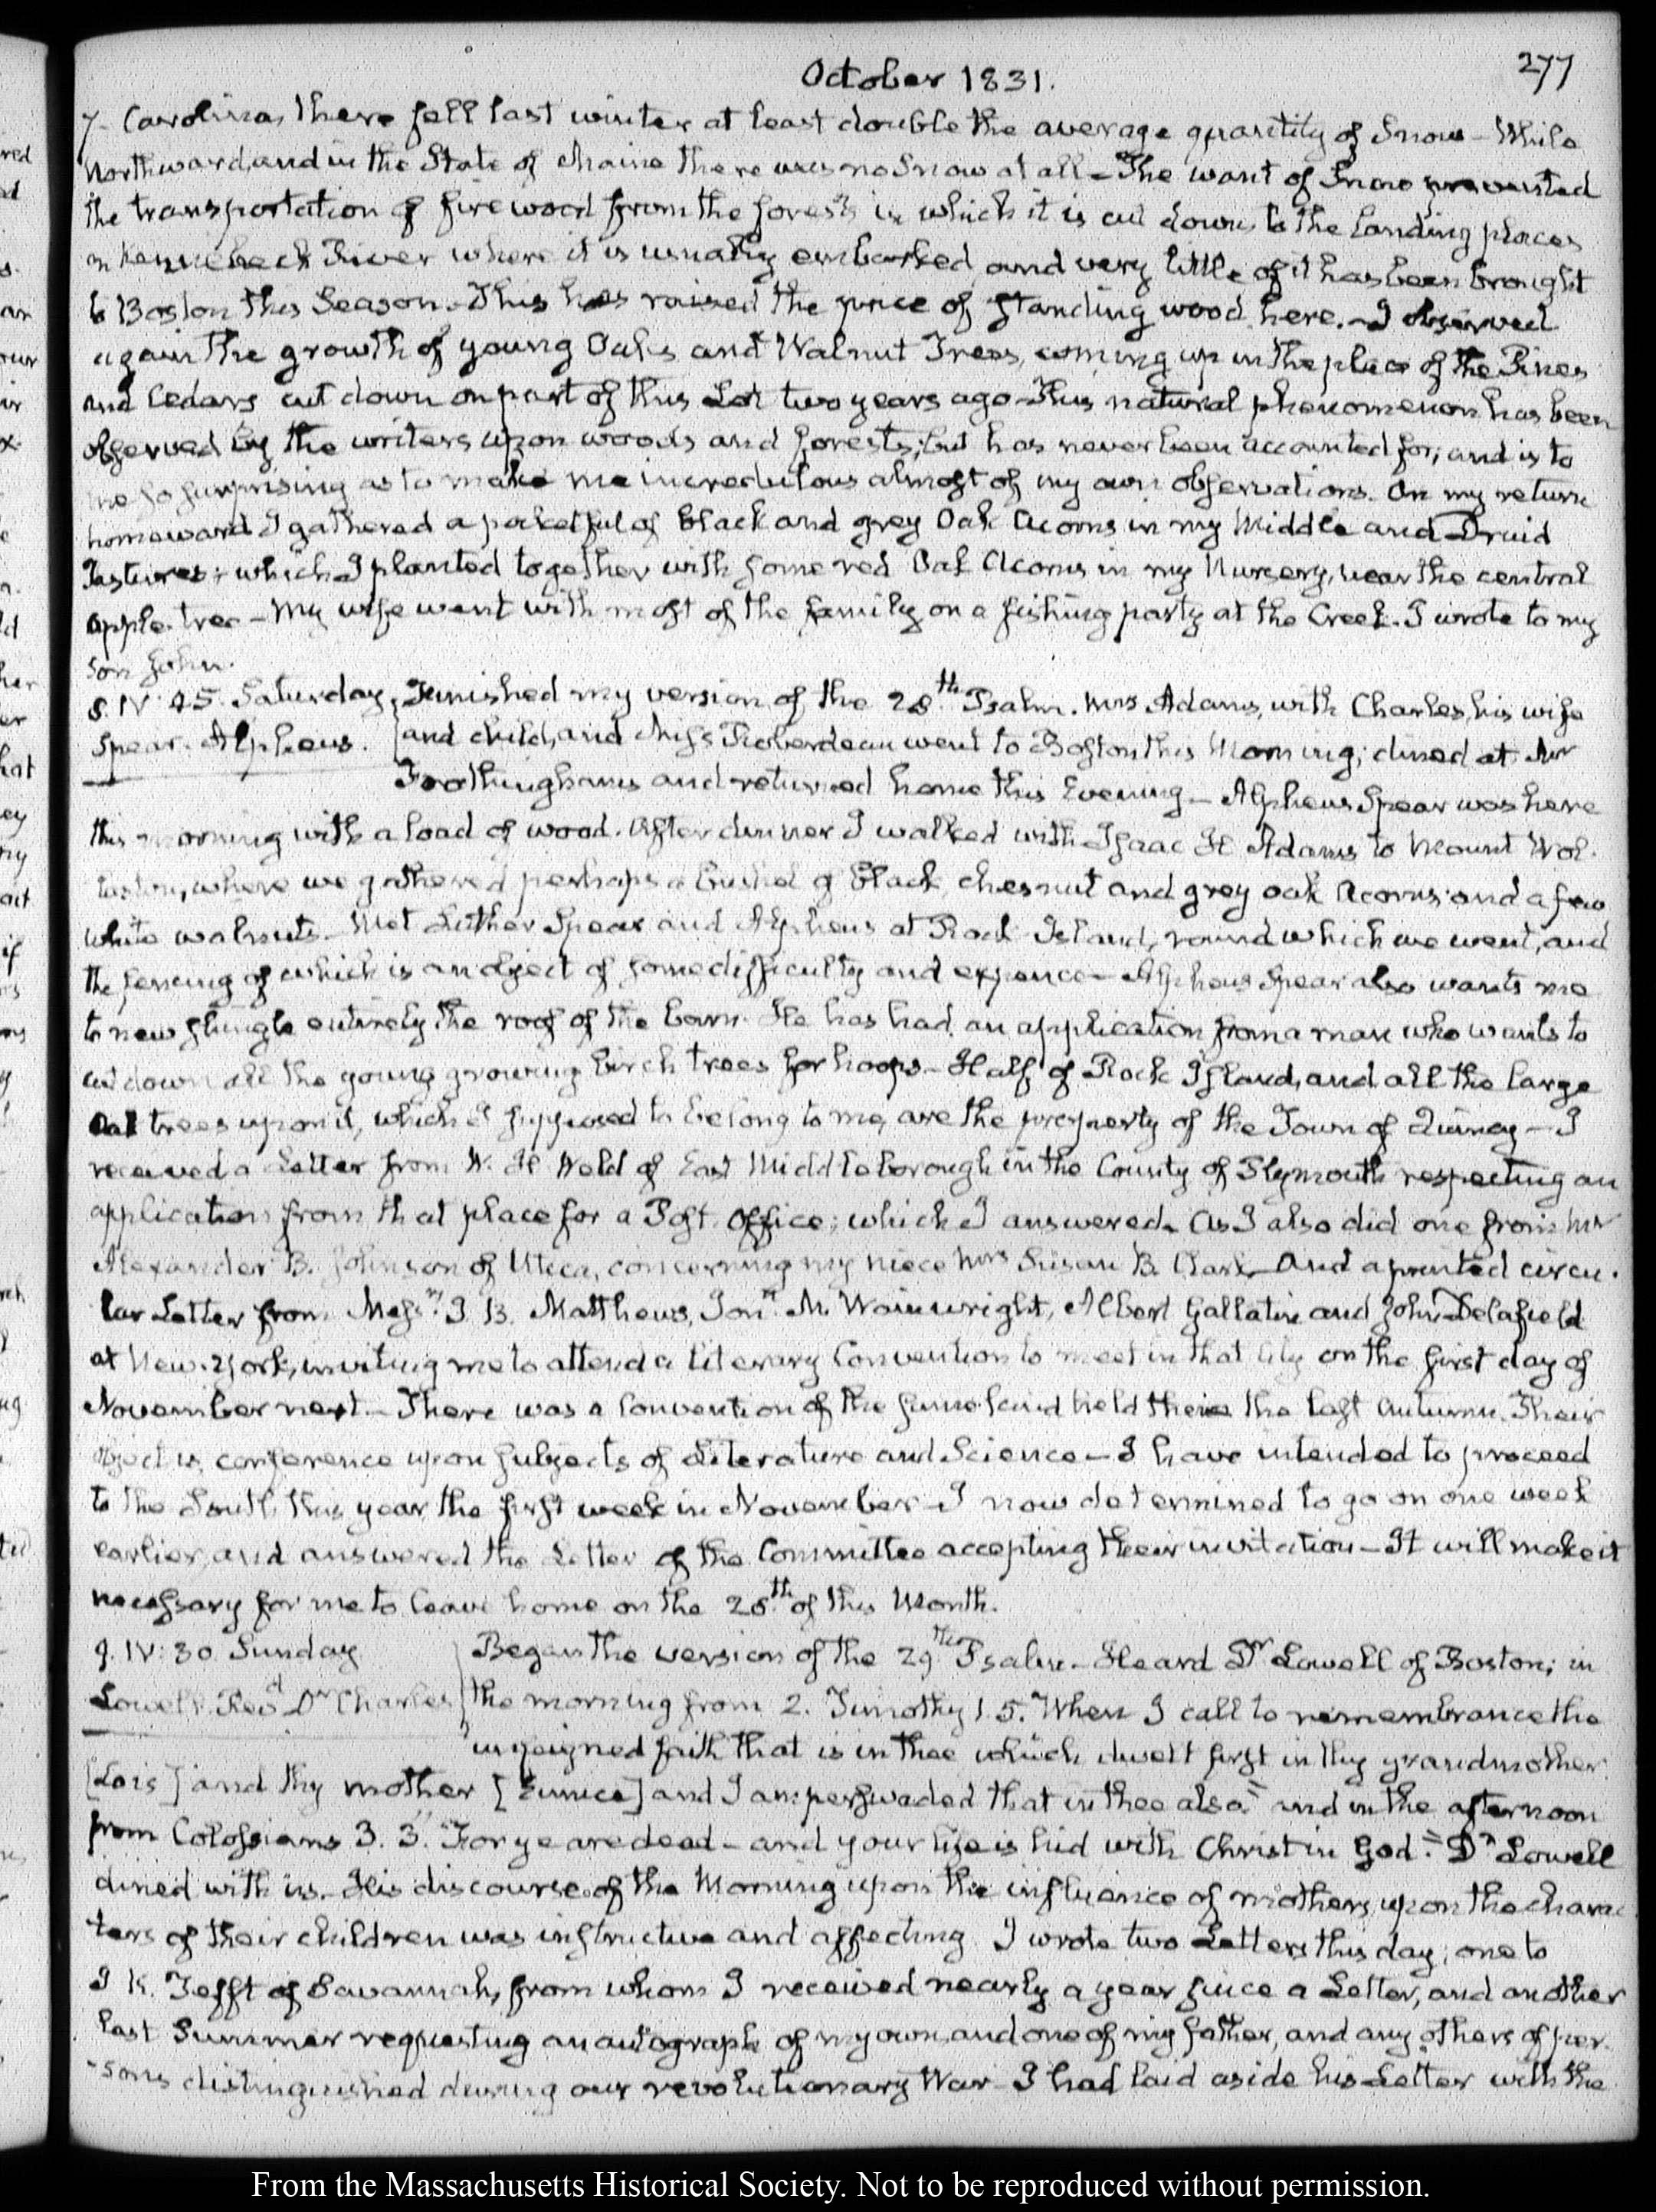 277
October 1831.
7. Carolina, there fell last winter at least double the average quantity of Snow — While
Northward, and in the State of Maine there was no Snow at all — The want of Snow prevented
the transportation of fire wood from the forests in which it is cut down, to the Landing places
on Kennebeck River where it is usually embarked, and very little of it has been brought
to Boston this Season. This has raised the price of standing wood here. — I observed
again the growth of young Oaks and Walnut Trees, coming up in the place of the Pines
and Cedars cut down on part of this Lot two years ago — This natural phenomenon has been
observed by the writers upon woods and forests; but has never been accounted for; and is to
me so surprising as to make me incredulous almost of my own observations. On my return
homeward I gathered a pocketful of black and grey Oak Acorns in my Middle and Druid
Pastures; which I planted together with some red Oak Acorns in my Nursery, near the central
apple-tree — My wife went with most of the family on a fishing party at the Creek. I wrote to my
Son John.
8. IV: 45. Saturday. Finished my version of the 28th Psalm. Mrs Adams, with Charles, his wife
Spear. Alpheus. and child, and Miss Roberdeau went to Boston this Morning; dined at Mr
Frothingham's and returned home this Evening — Alpheus Spear was here
this morning with a load of wood. After dinner I walked with Isaac H Adams to Mount Wol-
laston, where we gathered perhaps a bushel of black, chesnut and grey oak Acorns and a few
white walnuts — Met Luther Spear and Alpheus at Rock Island, round which we went, and
the fencing of which is an object of some difficulty and expence — Alpheus Spear also wants me
to new shingle entirely the roof of the barn. He has had an application from a man who wants to
cut down all the young growing birch trees for hoops — Half of Rock Island, and all the large
Oak trees upon it, which I supposed to belong to me, are the property of the Town of Quincy — I
received a Letter from W. H Weld of East Middleborough in the County of Plymouth respecting an
application from that place for a Post-Office; which I answered. As I also did one from Mr
Alexander B. Johnson of Utica, concerning my niece Mrs Susan B. Clark — And a printed circu-
lar Letter from Messrs J. B. Matthews, Jonn M. Wainwright, Albert Gallatin and John Delafield
at New-York, inviting me to attend a literary Convention to meet in that City on the first day of
November next. — There was a Convention of the same kind held there the last Autumn. Their
object is, conference upon subjects of Literature and Science — I have intended to proceed
to the South this year, the first week in November — I now determined to go on one week
earlier, and answered the Letter of the Committee accepting their invitation — It will make it
necessary for me to leave home on the 28th of this Month.
9. IV: 30. Sunday Began the version of the 29th Psalm. — Heard Dr Lowell of Boston; in
Lowell. Revd Dr Charles the morning from 2. Timothy 1. 5. "When I call to remembrance the
unfeigned faith that is in thee which dwelt first in thy grandmother
[Lois] and thy mother [Eunice] and I am perswaded that in thee also" and in the afternoon
from Colossians 3. 3. "For ye are dead — and your life is hid with Christ in God." Dr Lowell
dined with us. His discourse of the Morning upon the influence of mothers, upon the charac
ters of their children was instructive and affecting. I wrote two Letters this day; one to
I K. Tefft of Savannah, from whom I received nearly a year since a Letter, and another
last Summer requesting an autograph of my own, and one of my father, and any others of per-
-sons distinguished during our revolutionary War — I had laid aside his Letter with the
From the Massachusetts Historical Society. Not to be reproduced without permission.